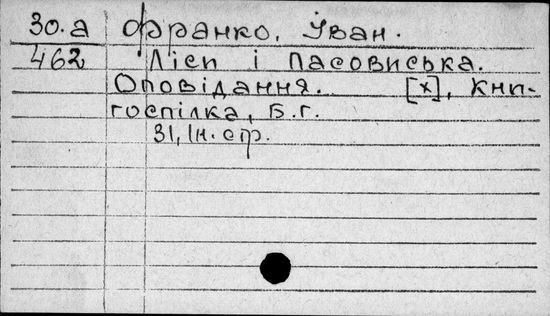 30.а Франко, Іван.
462 Ліси і пасовиська.
Оповідання. [х], Кни-
госпілка, Б.г.
31, Ін. стр.